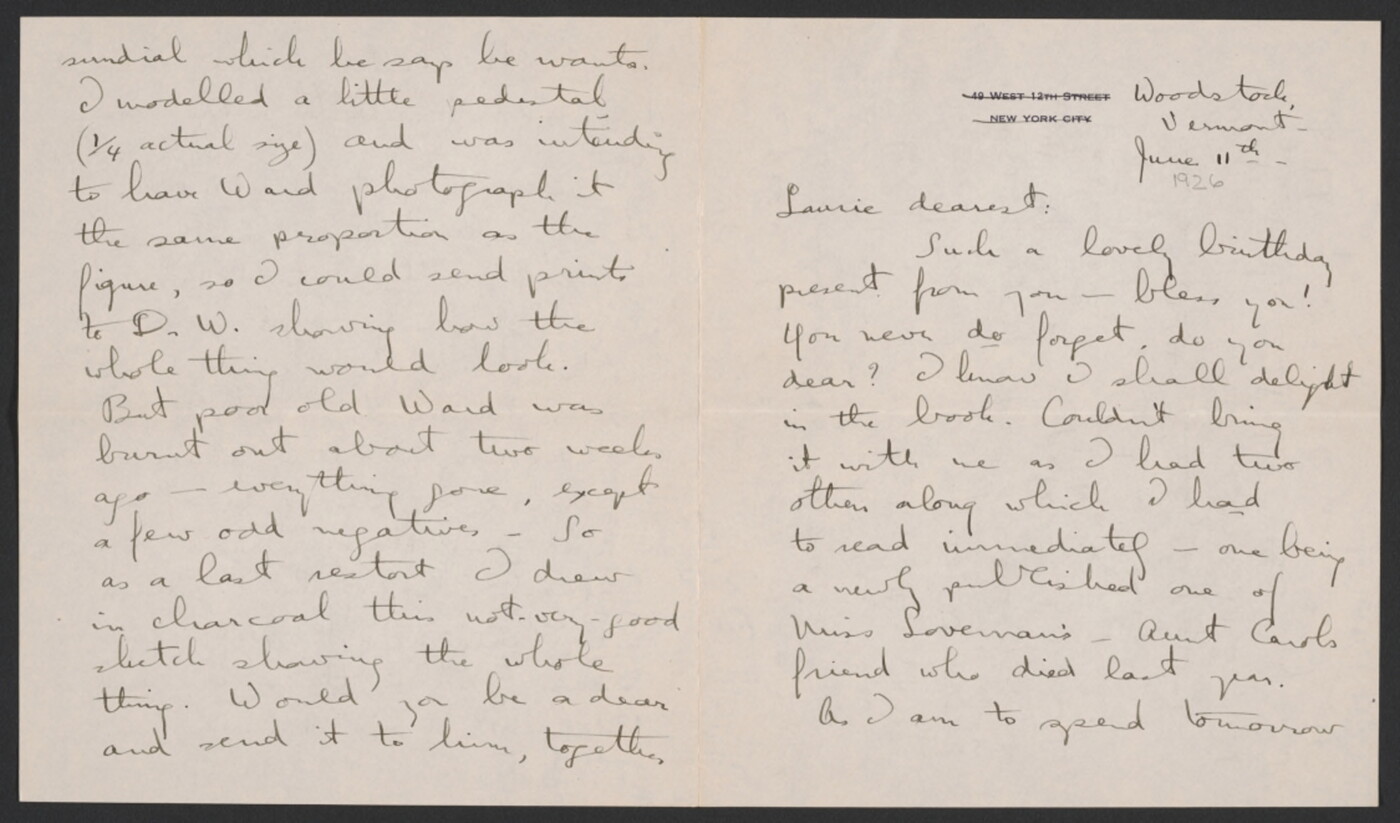 sundial which he says he wants.
I modelled a little pedestal
(1/4 actual size) and was intending
to have Ward photograph it
the same proportion as the
figure, so I could send prints
to D. W. showing how the
whole thing would look.
But poor old Ward was
burnt out about two weeks
ago — everything gone, except
a few odd negatives - So
as a last restort I drew
in charcoal this not-very-good
sketch showing the whole
thing. Would you be a dear
and send it to him, together
49 WEST 12TH STREET
NEW YORK CITY
Woodstock,
Vermont-
June 11th -
1926
Laurie dearest:
Such a lovely birthday
present from you — bless you!
You never do forget, do you
dear? I know I shall delight
in the book. Couldn't bring
it with me as I had two
others along which I had
to read immediately — one being
a newly published one of
Miss Loveman's - Aunt Carols
friend who died last year.
As I am to spend tomorrow